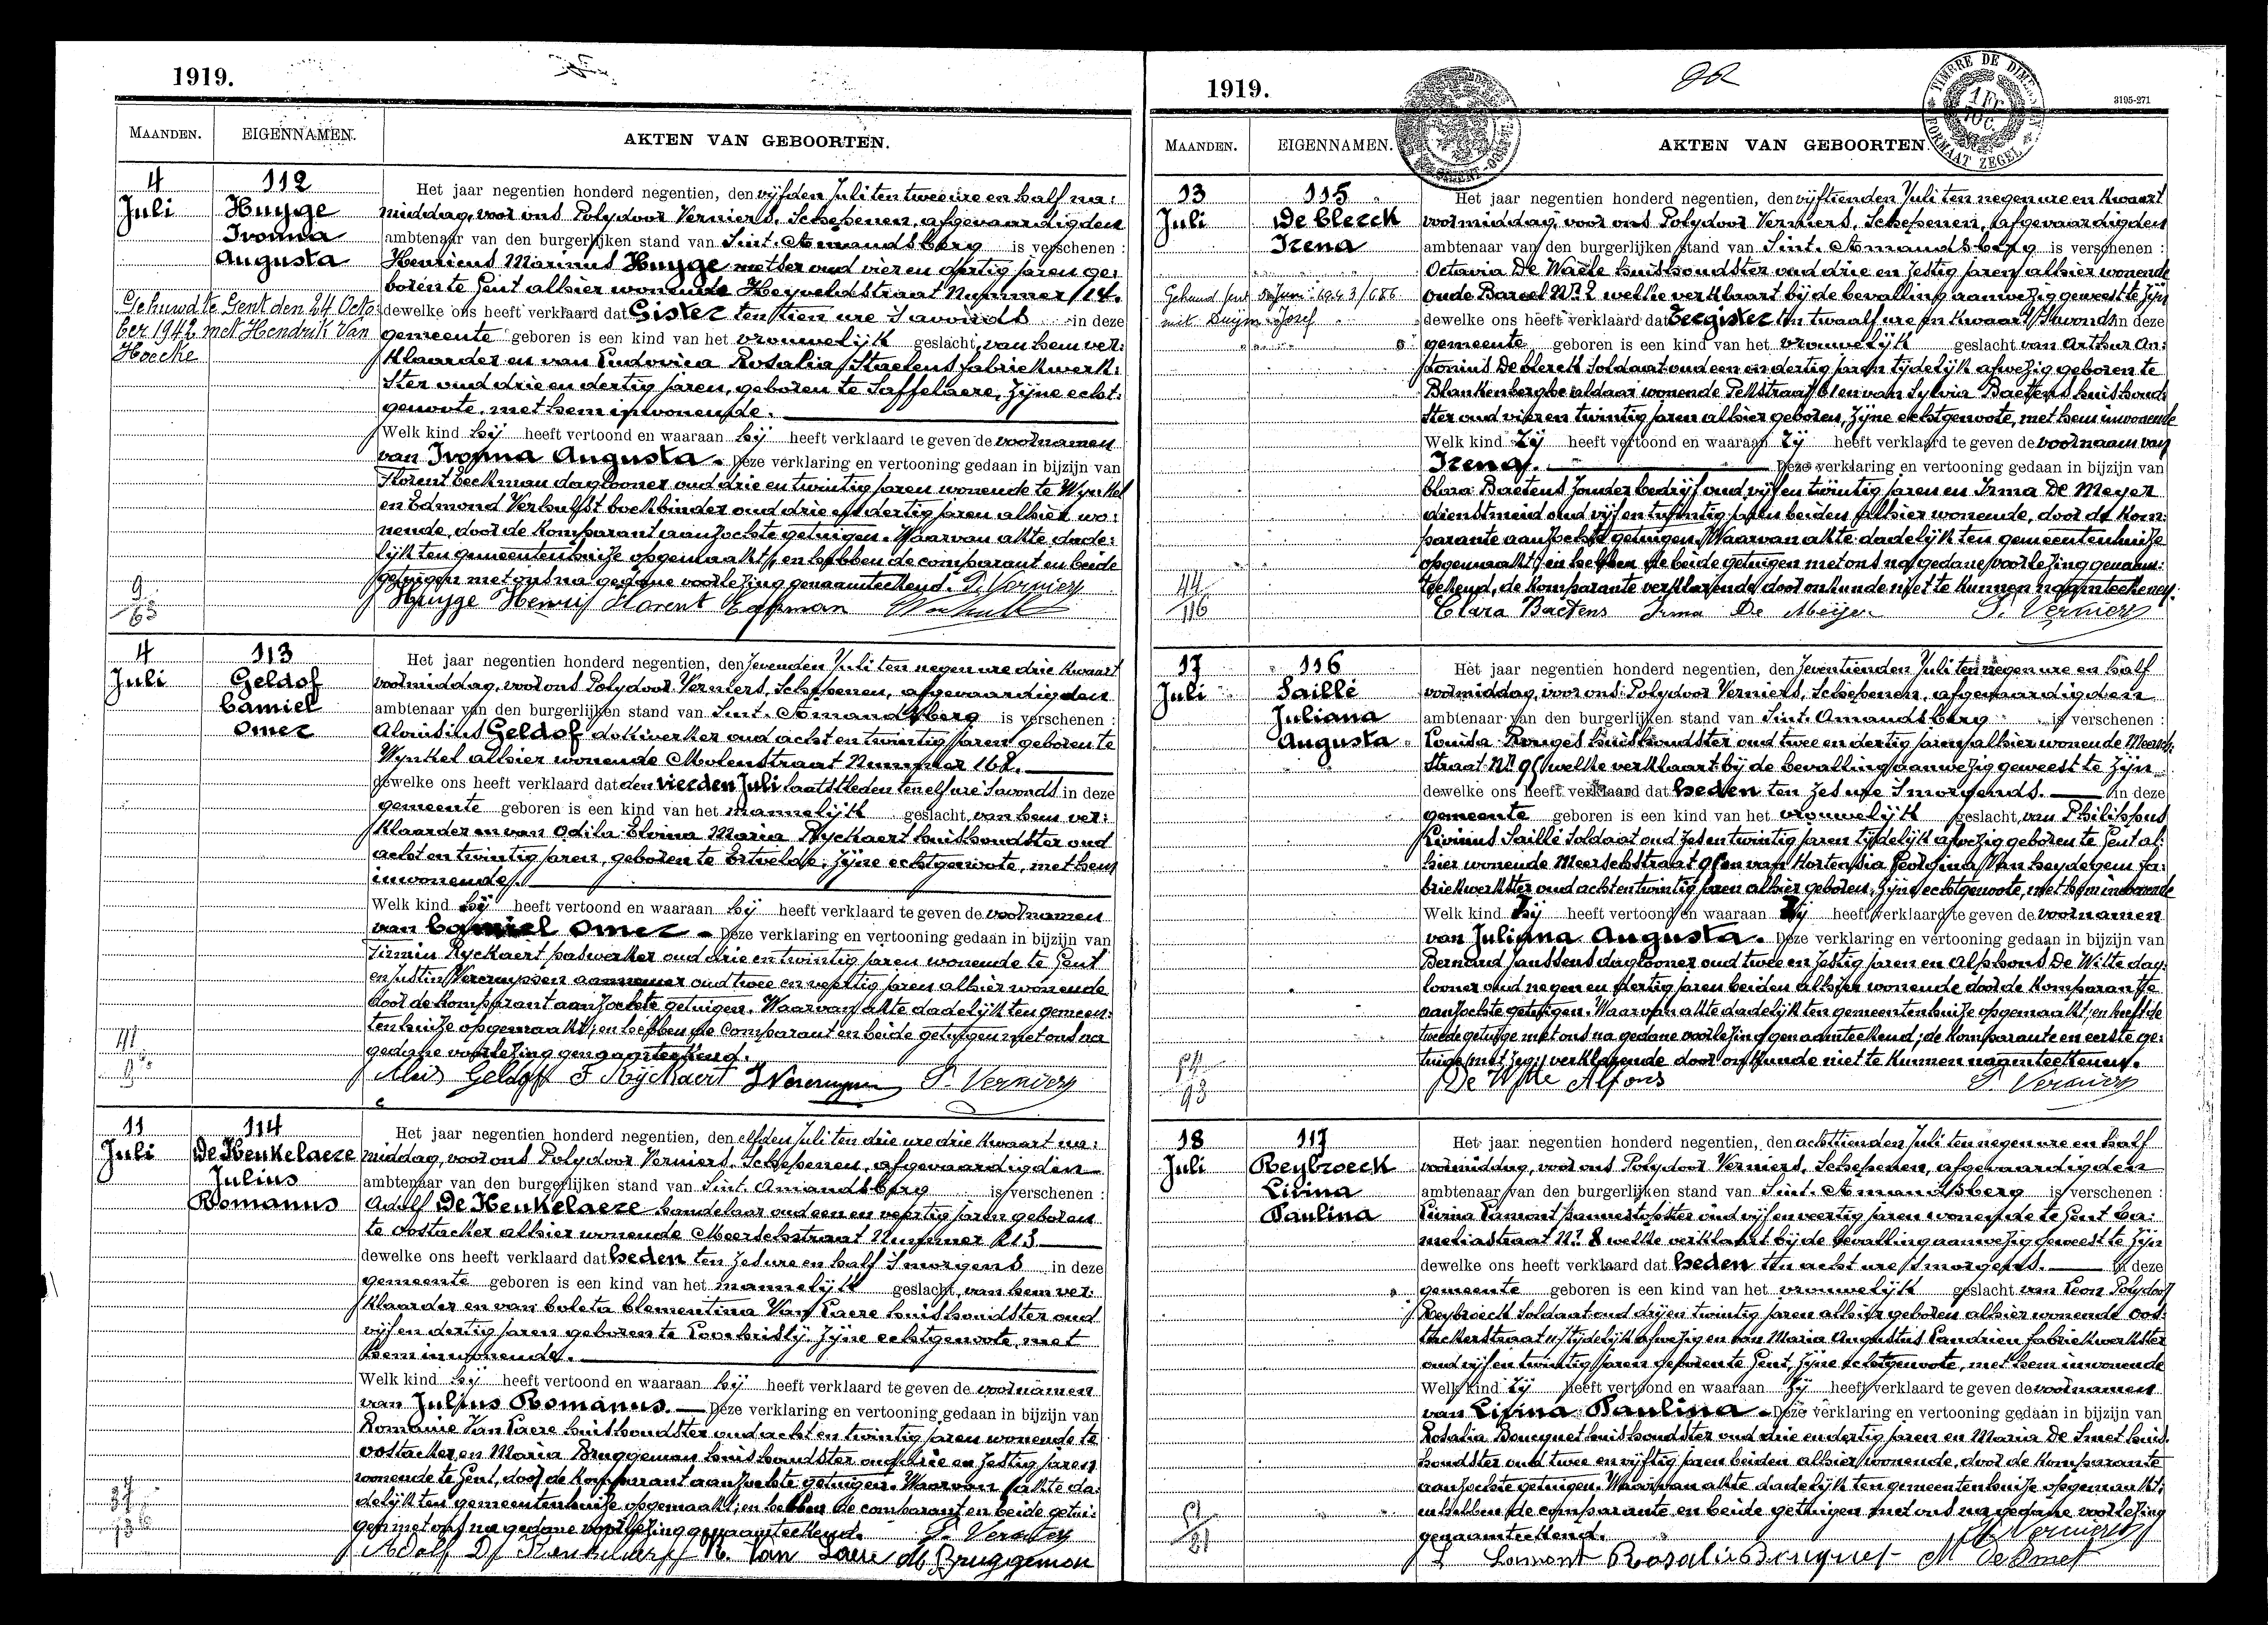 1919.
MAANDEN. EIGENNAMEN. AKTEN VAN GEBOORTEN.
4 Juli
112
Huyge
Ivonna
Augusta
Gehuwd te Gent den 24 Octo-
ber 1942 met Hendrik Van
Hoecke
Het jaar negentien honderd negentien, den vijfden Juli ten twee ure en half na:
middag, voor ons Polydoor Verniers, Schepenen, afgevaardigden
ambtenaar van den burgerlijken stand van Sint. Amandsberg is verschenen :
Henricus Marinus Huyge metser oud vier en dertig jaren ge:
boren te Gent alhier wonende Heyveldstraat Nummer 14.
dewelke ons heeft verklaard dat Gister ten tien ure 's avonds in deze
gemeente geboren is een kind van het vrouwelijk geslacht, van hem ver:
klaarder en van Ludovica Rosalia Staelens fabriekwerk:
ster oud drie en dertig jaren, geboren te Saffelaere, zijne echt:
genoote, met hem inwonende.
Welk kind hij heeft vertoond en waaraan hij heeft verklaard te geven de voornamen
van Ivonna Augusta. Deze verklaring en vertooning gedaan in bijzijn van
Florent Eeckman daglooner oud drie en twintig jaren wonende te Wynkel
en Edmond Verhulst boekbinder oud drie en dertig jaren alhier wo:
nende, door de komparant aanzochte getuigen. Waarvan akte dade:
lijk ten gemeentenhuize opgemaakt, en hebben de comparant en beide
getuigen met ons na gedane voorlezing genaamteekend. P. Verniers
Huyge Henri Florent
9
63
4 Juli
113
Geldof
Camiel
Omer
Het jaar negentien honderd negentien, den zevenden Juli ten negen ure drie kwaart
voormiddag, voor ons Polydoor Verniers, Schepenen, afgevaardigden
ambtenaar van den burgerlijken stand van Sint. Amandsberg is verschenen :
Aloisius Geldof dokwerker oud acht en twintig jaren geboren te
Wynkel alhier wonende Molenstraat Nummer 168.
dewelke ons heeft verklaard dat den vierden Juli laatstleden ten elf ure 's avonds in deze
gemeente geboren is een kind van het mannelijk geslacht, van hem ver:
klaarder en van Odila Elvina Maria Ryckaert huishoudster oud
acht en twintig jaren, geboren te Ertvelde, zijne echtgenoote, met hem
inwonende.
Welk kind hij heeft vertoond en waaraan hij heeft verklaard te geven de voornamen
van Camiel Omer. Deze verklaring en vertooning gedaan in bijzijn van
Firmin Ryckaert paswerker oud drie en twintig jaren wonende te Gent
en Justin Vercruyssen aannemer oud twee en veertig jaren alhier wonende
door de komparant aanzochte getuigen. Waarvan akte dadelijk ten gemeen:
tenhuize opgemaakt; en hebben de comparant en beide getuigen met ons na
gedane voorlezing genaamteekend.
Alois Geldof F Ryckaert J Vercruyssen P. Verniers
11 Juli
114
De Keukelaere
Julius
Romanus
Het jaar negentien honderd negentien, den elfden Juli ten drie ure drie kwaart na:
middag, voor ons Polydoor Verniers, Schepenen, afgevaardigden
ambtenaar van den burgerlijken stand van Sint. Amandsberg is verschenen :
Adolf De Keukelaere handelaar oud een en veertig jaren geboren
te Oostacker alhier wonende Meerschstraat Nummer 213
dewelke ons heeft verklaard dat heden ten zes ure en half 's morgens in deze
gemeente geboren is een kind van het mannelijk geslacht, van hem ver:
klaarder en van Coleta Clementina Van Laere huishoudster oud
vijf en dertig jaren geboren te Loochristij, zijne echtgenoote, met
hem inwonende.
Welk kind hij heeft vertoond en waaraan hij heeft verklaard te geven de voornamen
van Julius Romanus. Deze verklaring en vertooning gedaan in bijzijn van
Romanie Van Laere huishoudster oud acht en twintig jaren wonende te
Oostacker en Maria Bruggeman huishoudster oud drie en zestig jaren
wonende te Gent, door de komparant aanzochte getuigen. Waarvan akte da:
delijk ten gemeentenhuize opgemaakt; en hebben de comparant en beide getui:
gen met ons na gedane voorlezing genaamteekend. P. Verniers
Adolf De Keukelaere R. Van Laere M Bruggeman
1919.
TIMBRE DE DIMENSION
1 Fr.
10 C.
FORMAAT ZEGEL
3195-271
MAANDEN. EIGENNAMEN. AKTEN VAN GEBOORTEN.
13 Juli
115
De Clerck
Irena
Het jaar negentien honderd negentien, den vijftienden Juli ten negen ure en kwaart
voormiddag, voor ons Polydoor Verniers, Schepenen, afgevaardigden
ambtenaar van den burgerlijken stand van Sint. Amandsberg is verschenen :
Octavia De Waele huishoudster oud drie en zestig jaren alhier wonende
oude Bareel Nr. 2 welke verklaart bij de bevalling aanwezig geweest te zijn
dewelke ons heeft verklaard dat Eergister ten twaalf ure en kwaart 's avonds in deze
gemeente geboren is een kind van het vrouwelijk geslacht van Arthur An:
tonius De Clerck soldaat oud een en dertig jaren tijdelijk afwezig geboren te
Blankenberghe aldaar wonende en van Sylvia Baetens huishoud:
ster oud vier en twintig jaren alhier geboren, zijne echtgenoote, met hem inwonende
Welk kind zij heeft vertoond en waaraan zij heeft verklaard te geven de voornaam van
Irena. Deze verklaring en vertooning gedaan in bijzijn van
Clara Baetens zonder bedrijf oud vijf en twintig jaren en Irma De Meyer
dienstmeid oud vijf en twintig jaren beiden alhier wonende, door de kom:
parante aanzochte getuigen. Waarvan akte dadelijk ten gemeentenhuize
opgemaakt; en hebben de beide getuigen met ons na gedane voorlezing genaam:
teekend, de komparante verklarende door onkunde niet te kunnen naamteekenen.
Clara Baetens Irma De Meijer P. Verniers
44
116
17 Juli
116
Saillé
Juliana
Augusta
Het jaar negentien honderd negentien, den zeventienden Juli ten negen ure en half
voormiddag, voor ons Polydoor Verniers, Schepenen, afgevaardigden
ambtenaar van den burgerlijken stand van Sint. Amandsberg is verschenen :
Louisa Ronges huishoudster oud twee en dertig jaren alhier wonende Meersch:
straat Nr. 91 welke verklaart bij de bevalling aanwezig geweest te zijn
dewelke ons heeft verklaard dat heden ten zes ure 's morgends. in deze
gemeente geboren is een kind van het vrouwelijk geslacht, van Philippus
Livinus Saillé soldaat oud zes en twintig jaren tijdelijk afwezig geboren te Gent al:
hier wonende Meerschstraat 91 en van Hortensia Leontina Van heydegem fa:
briekwerkster oud acht en twintig jaren alhier geboren, zijne echtgenoote, met hem inwonende
Welk kind zij heeft vertoond en waaraan zij heeft verklaard te geven de voornamen
van Juliana Augusta. Deze verklaring en vertooning gedaan in bijzijn van
Bernard Janssens daglooner oud twee en zestig jaren en Alphons De Witte dag:
looner oud negen en dertig jaren beiden alhier wonende door de komparante
aanzochte getuigen. Waarvan akte dadelijk ten gemeentenhuize opgemaakt; en heeft de
tweede getuige met ons na gedane voorlezing genaamteekend; de komparante en eerste ge:
tuige verklarende door onkunde niet te kunnen naamteekenen.
De Witte Alfons P. Verniers
54
93
18 Juli
117
Reybroeck
Livina
Paulina
Het jaar negentien honderd negentien, den achttienden Juli ten negen ure en half
voormiddag, voor ons Polydoor Verniers, Schepenen, afgevaardigden
ambtenaar van den burgerlijken stand van Sint. Amandsberg is verschenen :
Livina Lamont oud vijf en veertig jaren wonende te Gent Ca:
meliastraat Nr. 8 welke verklaart bij de bevalling aanwezig geweest te zijn
dewelke ons heeft verklaard dat heden ten acht ure 's morgens. in deze
gemeente geboren is een kind van het vrouwelijk geslacht van Leon Polydoor
Reybroeck soldaat oud drijen twintig jaren alhier geboren alhier wonende Oos:
tackerstraat tijdelijk afwezig en van Maria Augustus Landrien fabriekwerkster
oud vijf en twintig jaren geboren te Gent, zijne echtgenoote, met hem inwonende
Welk kind zij heeft vertoond en waaraan zij heeft verklaard te geven de voornamen
van Livina Paulina. Deze verklaring en vertooning gedaan in bijzijn van
Rosalia Boucquet huishoudster oud drie en dertig jaren en Maria De Smet huis:
houdster oud twee en vijftig jaren beiden alhier wonende, door de komparante
aanzochte getuigen. Waarvan akte dadelijk ten gemeentenhuize opgemaakt;
en hebben de comparante en beide getuigen met ons na gedane voorlezing
genaamteekend. P. Verniers
L Lamont Rosalia Boucquet M De Smet